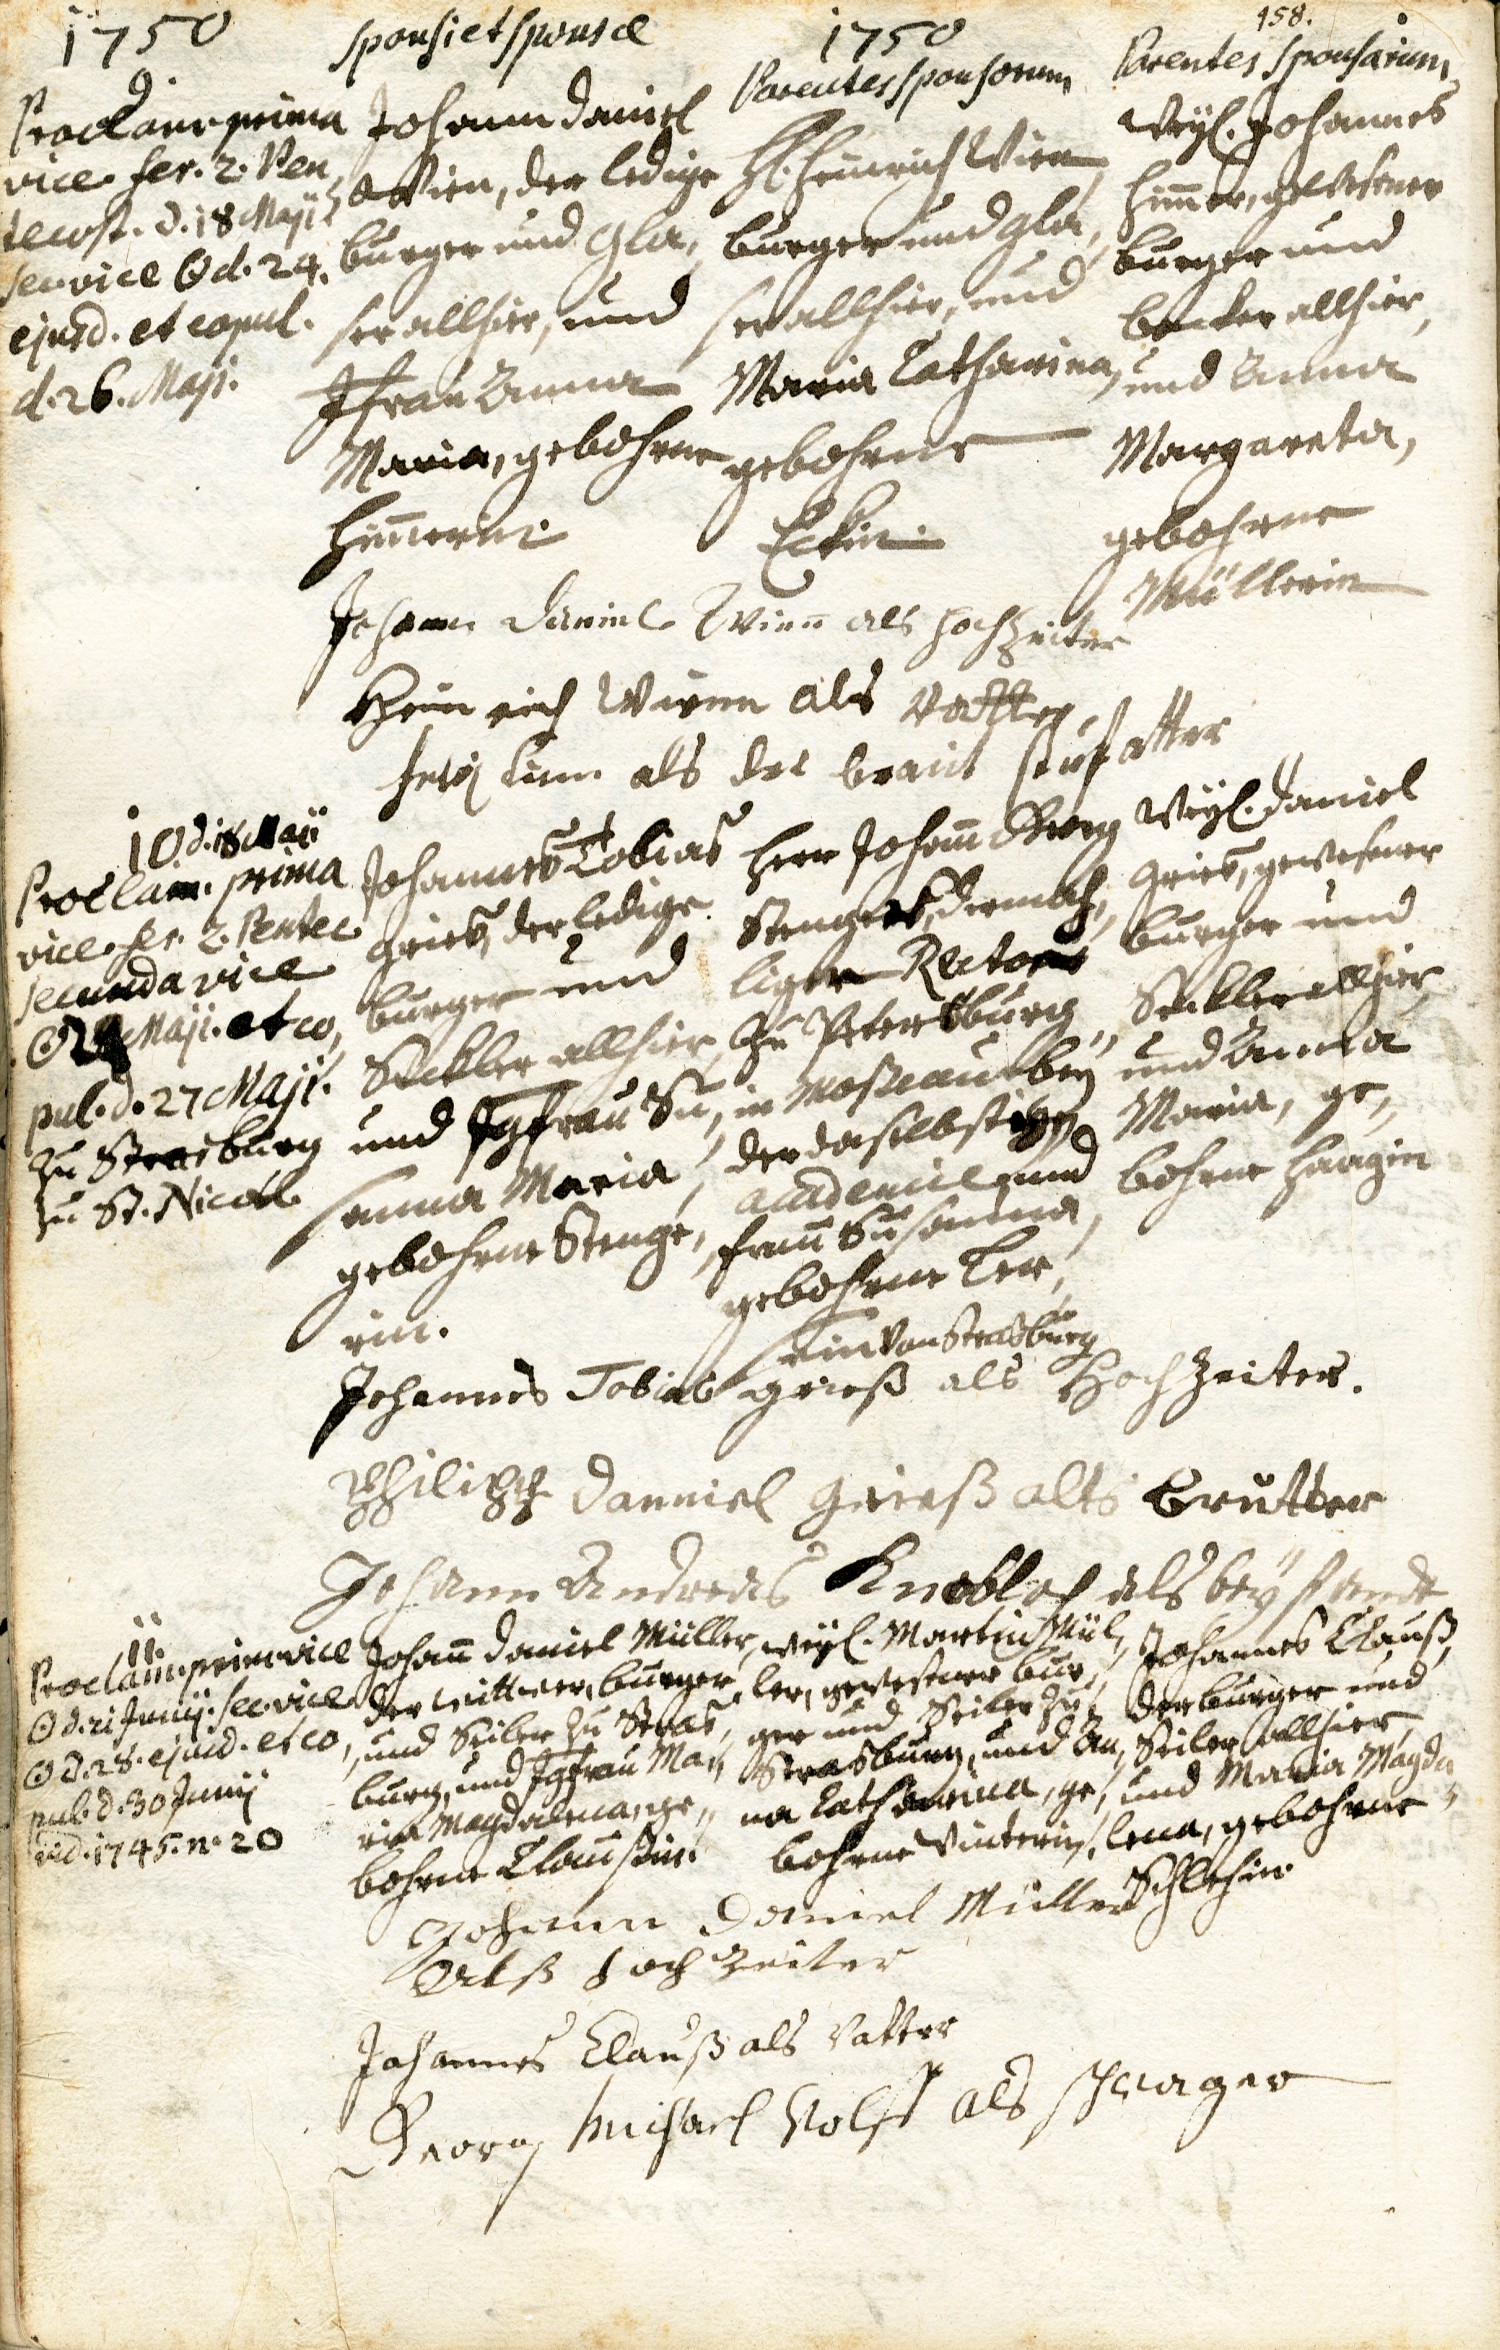 158.
1750
sponsi et sponsæ
1750
Parentes sponsorum
Parentes sponsarum
9.
Proclam. prima
vice fer. 2. Pen
tecost. d. 18 Maji
sec. vice ☉ d. 24.
ejusd. et copul.
d. 26. Maji.
Johann Daniel
Wien, der ledige
burger und Gla,
ser allhier, und
Jfrau Anna
Maria, gebohrne
Him̅erin.
H. Heinrich Wien
burger und Gla,
ser allhier, und
Maria Catharina,
gebohrne
Eckin.
Weyl. Johannes
Him̅er, gewesener
burger und
becker allhier,
und Anna
Margareta,
gebohrne
Müllerin
Johann Daniel Wien̅ als hochzeiter
Heinrich Wienn als Vatter
als der braut stifatter
10. d. 18 Maji
Proclam. prima
vice fer. 2. Pentec.
secunda vice
☉ 24 Maji. et co,
pul. d. 27 Maji.
zu Strasburg
zu St. Nicol.
Johannes Tobias
Gries, der ledige
burger und
Seckler allhier,
und Jgfrau Su,
sanna Maria,
gebohrne Stenge,
rin.
Herr Johann Georg
Stengers, dermah,
ligen Rectors
zu Petersburg
in Moscau bey
der daselbstigen
academie und
frau Susanna,
gebohrne Ler,
sin von Strasburg
Weyl. Daniel
Gries, gewesener
burger und
Seckler allhier
und Anna
Maria, ge,
bohrne Haagin
Johannes Tobias Grieß als Hochzeiter.
Philipp Danniel Grieß alts brutter
Johann Andreas Knobloch als beystandt
11.
Proclam. prim. vice
☉ d. 21 Junij. sec. vice
☉ d. 28. ejusd. et co,
pul. d. 30 Junij
vid. 1745. n. 20
Johann Daniel Müller,
der wittwer, burger
und Seiler zu Stras,
burg, und Jgfrau Ma,
ria Magdalena, ge,
bohrne Claußin.
Weyl. Martin Mül,
ler, gewesener bur,
ger und Seiler zu
Strasburg, und An,
na Catharina, ge,
bohrne Winterin.
Johannes Clauß,
der burger und
Seiler allhier,
und Maria Magda
lena, gebohrne
Schlehin
Johann Daniel Müller
Alß hochzeiter
Johannes Clauß als Vatter
Georg Michael Wolff als schwager